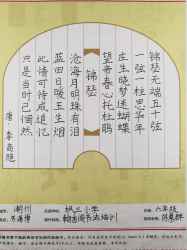 锦瑟无端五十弦
一弦一柱思华年
庄生晓梦迷蝴蝶
望帝春心托杜鹃
锦瑟
沧海月明珠有泪
蓝田日暖玉生烟
此情可待成追忆
只是当时已惘然
唐·李商隐
潮州 小学 六年级
书法培训